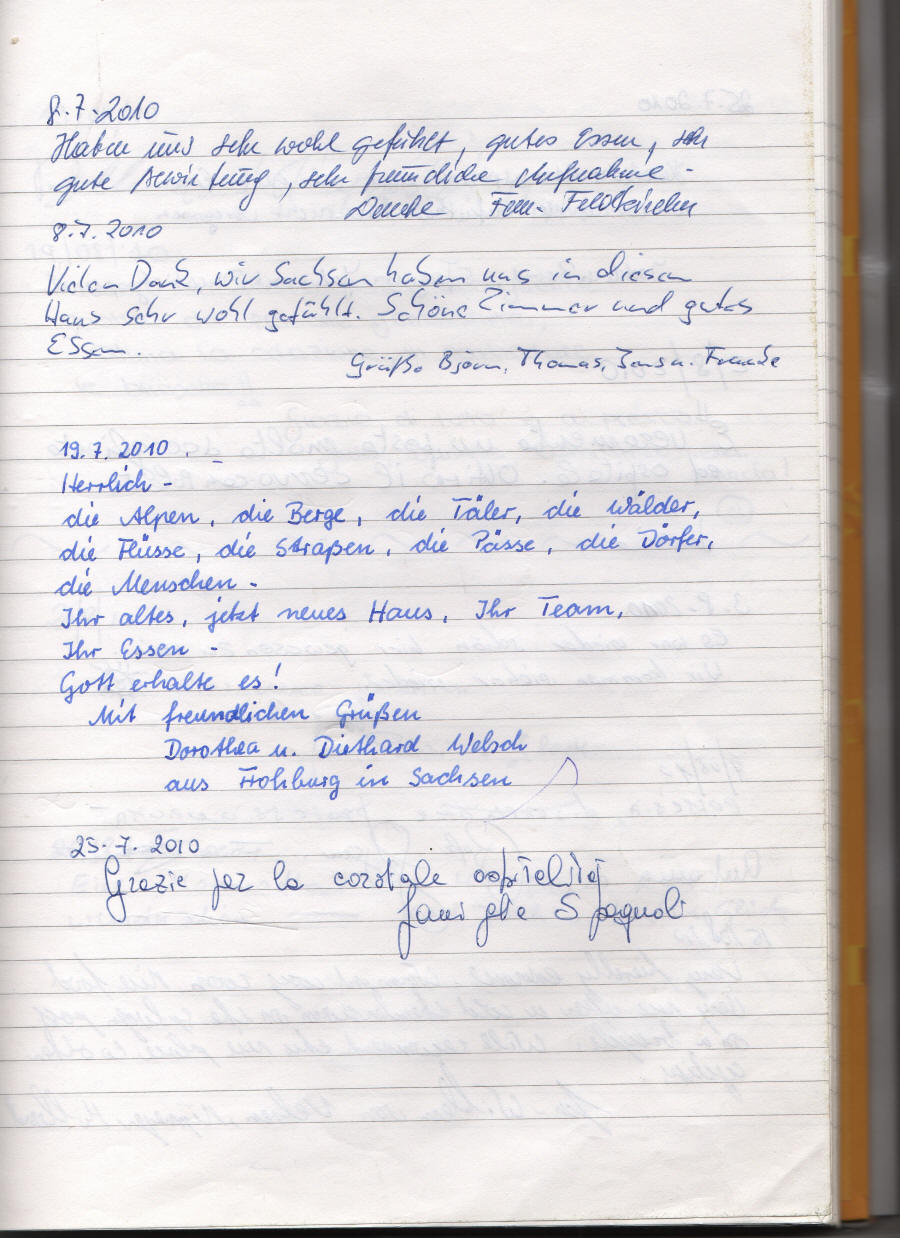 8.7.2010
Haben uns sehr wohl gefühlt, gutes Essen, sehr
gute Bewirtung, sehr freundliche Aufnahme -
Danke Fam. Feldkircher
8.7.2010
Vielen Dank, wir Sachsen haben uns in diesem
Haus sehr wohl gefühlt. Schöne Zimmer und gutes
Essen.
Grüße Björn, Thomas, Jens u. Freunde
19.7.2010
Herrlich -
die Alpen, die Berge, die Täler, die Wälder,
die Flüsse, die Straßen, die Pässe, die Dörfer,
die Menschen -
Ihr altes, jetzt neues Haus, Ihr Team,
Ihr Essen -
Gott erhalte es!
Mit freundlichen Grüßen
Dorothea u. Diethard Welsch
aus Frohburg in Sachsen
25.7.2010
Grazie per la cordiale ospitalità
famiglia Spagnoli